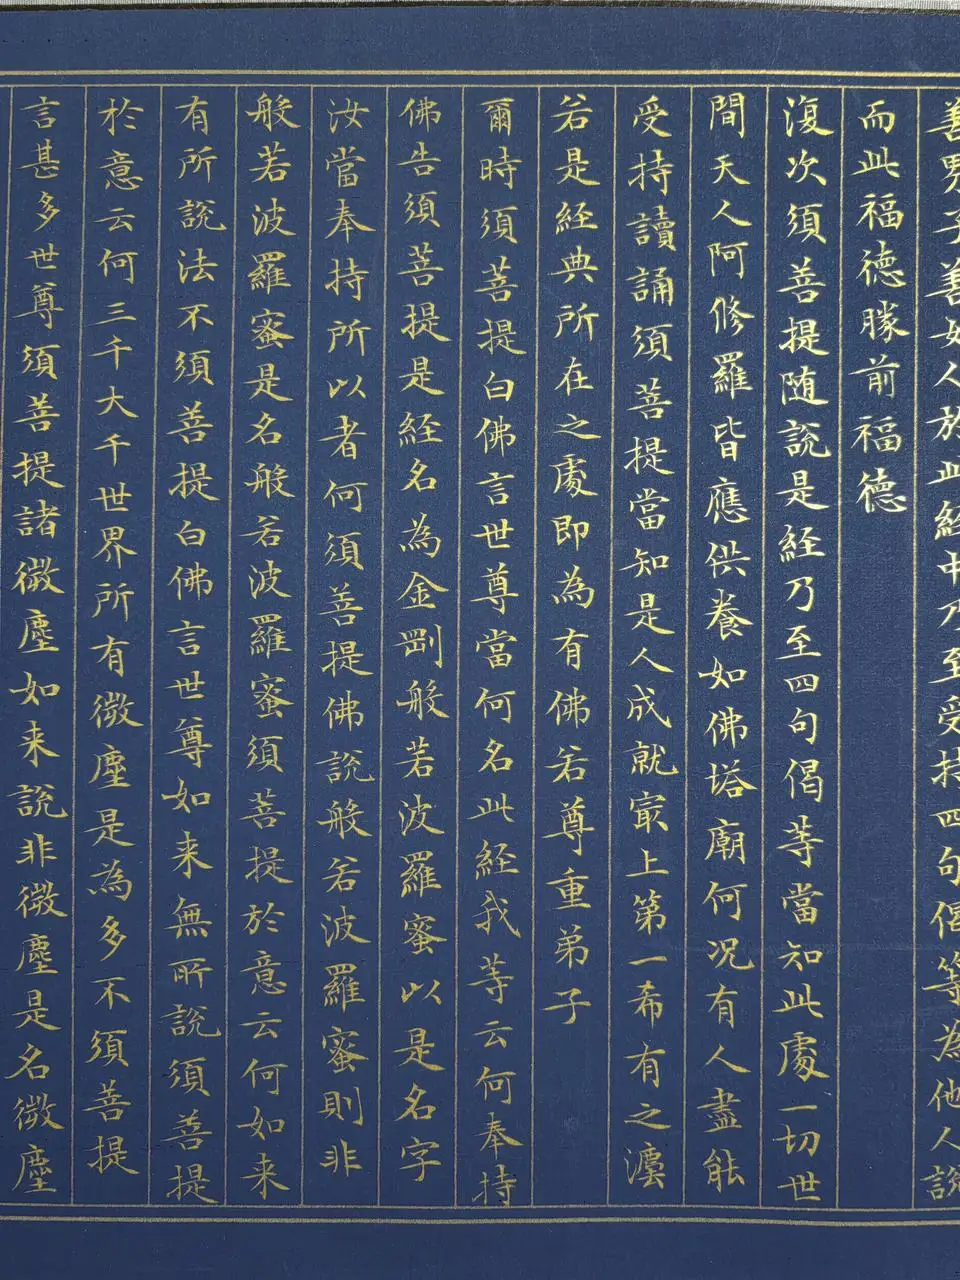 善男子善女人於此経中乃至受持四句偈等為他人說
而此福德勝前福德
復次須菩提随說是経乃至四句偈等當知此處一切世
間天人阿修羅皆應供養如佛塔廟何况有人盡能
受持讀誦須菩提當知是人成就冣上第一希有之瀍
若是経典所在之處即為有佛若尊重弟子
爾時須菩提白佛言世尊當何名此経我等云何奉持
佛告須菩提是経名為金剛般若波羅蜜以是名字
汝當奉持所以者何須菩提佛說般若波羅蜜則非
般若波羅蜜是名般若波羅蜜須菩提於意云何如来
有所說法不須菩提白佛言世尊如来無所說須菩提
於意云何三千大千世界所有微塵是為多不須菩提
言甚多世尊須菩提諸微塵如来說非微塵是名微塵